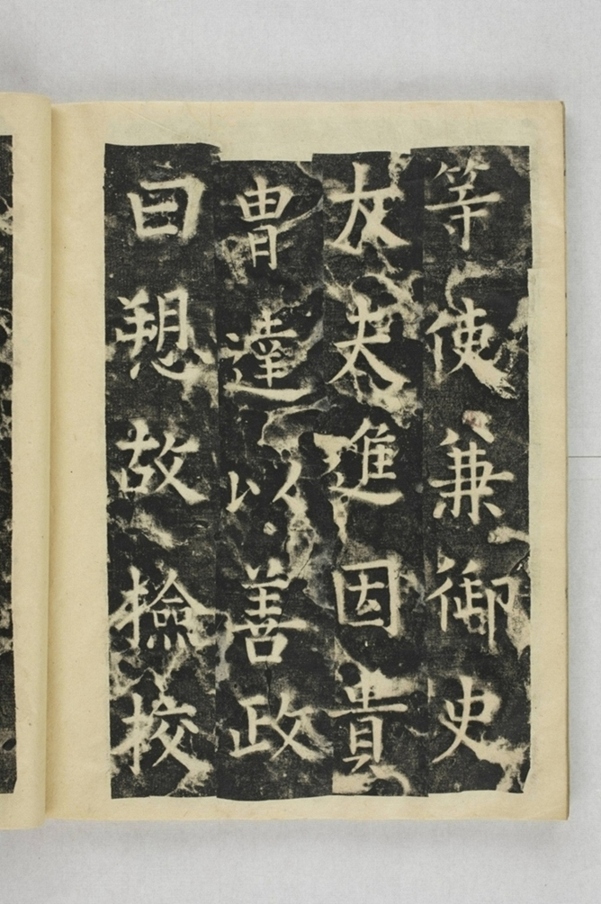 等使兼御史
大夫進因貴
胄達以善政
曰愬故檢校